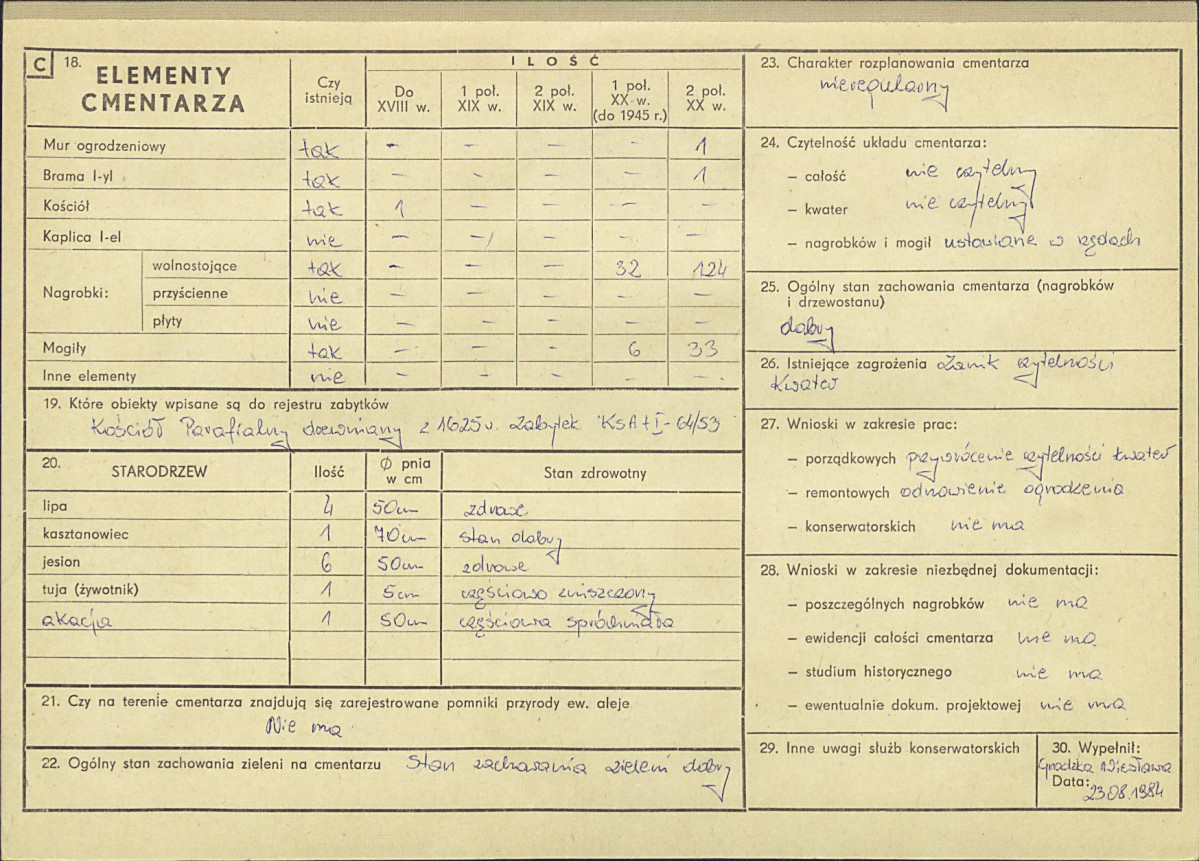 C 18. ELEMENTY CMENTARZA
Czy istnieją
I L O Ś Ć
Do XVIII w.
1 poł. XIX w.
2 poł. XIX w.
1 poł. XX w. (do 1945 r.)
2 poł. XX w.
Mur ogrodzeniowy tak – – – – 1
Brama l-yl tak – – – – 1
Kościół tak 1 – – – –
Kaplica l-el nie – – – – –
Nagrobki:
wolnostojące tak – – – 32 124
przyścienne nie – – – – –
płyty nie – – – – –
Mogiły tak – – – 6 33
Inne elementy nie – – – – –
19. Które obiekty wpisane są do rejestru zabytków
Kościół Parafialny drewniany z 1625 r. zabytek KSA+I-64/53
20. STARODRZEW Ilość Ø pnia w cm Stan zdrowotny
lipa 4 50cm zdrowe
kasztanowiec 1 70cm stan dobry
jesion 6 50cm zdrowe
tuja (żywotnik) 1 5cm częściowo zniszczony
akacja 1 50cm częściowa spróchniała
21. Czy na terenie cmentarza znajdują się zarejestrowane pomniki przyrody ew. aleje
Nie ma
22. Ogólny stan zachowania zieleni na cmentarzu Stan zachowania zieleni dobry
23. Charakter rozplanowania cmentarza
nieregularny
24. Czytelność układu cmentarza:
– całość nie czytelny
– kwater nie czytelny
– nagrobków i mogił ustawiane w rzędach
25. Ogólny stan zachowania cmentarza (nagrobków
i drzewostanu)
dobry
26. Istniejące zagrożenia Zanik czytelności
kwater
27. Wnioski w zakresie prac:
– porządkowych przywrócenie czytelności kwater
– remontowych odnowienie ogrodzenia
– konserwatorskich nie ma
28. Wnioski w zakresie niezbędnej dokumentacji:
– poszczególnych nagrobków nie ma
– ewidencji całości cmentarza nie ma
– studium historycznego nie ma
– ewentualnie dokum. projektowej nie ma
29. Inne uwagi służb konserwatorskich
30. Wypełnił:
Grodzka Wiesława
Data: 23.08.1984